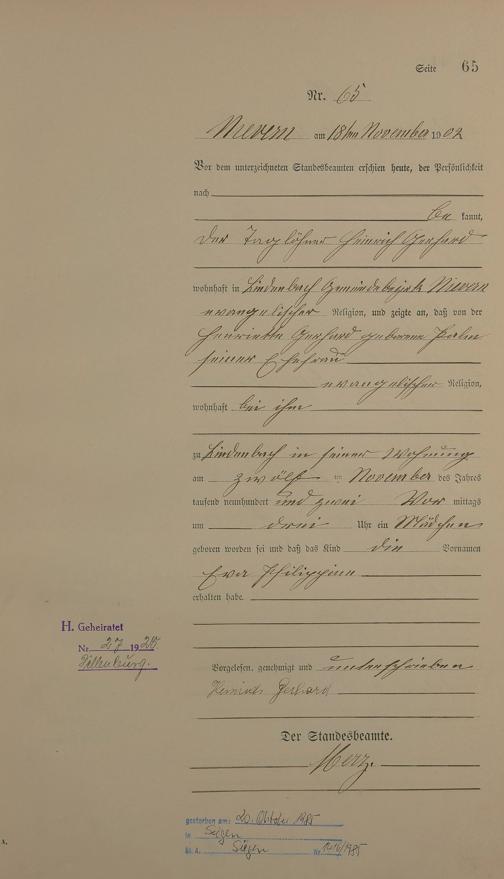 Seite 65
Nr. 65
Nievern am 18ten November 1902
Vor dem unterzeichneten Standesbeamten erschien heute, der Persönlichkeit
nach
be kannt,
der Taglöhner Heinrich Gerhard
wohnhaft in Lindenbach Gemeindebezirk Nievern
evangelischer Religion, und zeigte an, daß von der
Henriette Gerhard geborene
seiner Ehefrau
evangelischer Religion,
wohnhaft bei ihm
zu Lindenbach in seiner Wohnung
am zwölf ten November des Jahres
tausend neunhundert und zwei Vor mittags
um drei Uhr ein Mädchen
geboren worden sei und daß das Kind die Vornamen
Eva Philippine
erhalten habe.
H. Geheiratet
Nr. 27 1920
Dillenburg.
Vorgelesen, genehmigt und unterschrieben
Heinrich Gerhard
Der Standesbeamte.
Merz.
gestorben am: 20. Oktober 1985
in Siegen
St. A. Siegen Nr. /1985